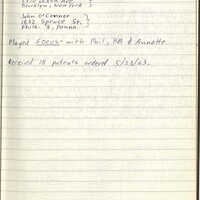 Brooklyn, New York }
John O'Connor }
1632 Spruce St. }
Phila. 3, Penna. }
Played FOCUS with Phil, Bob & Annette.
Received 18 patents ordered 5/23/63.